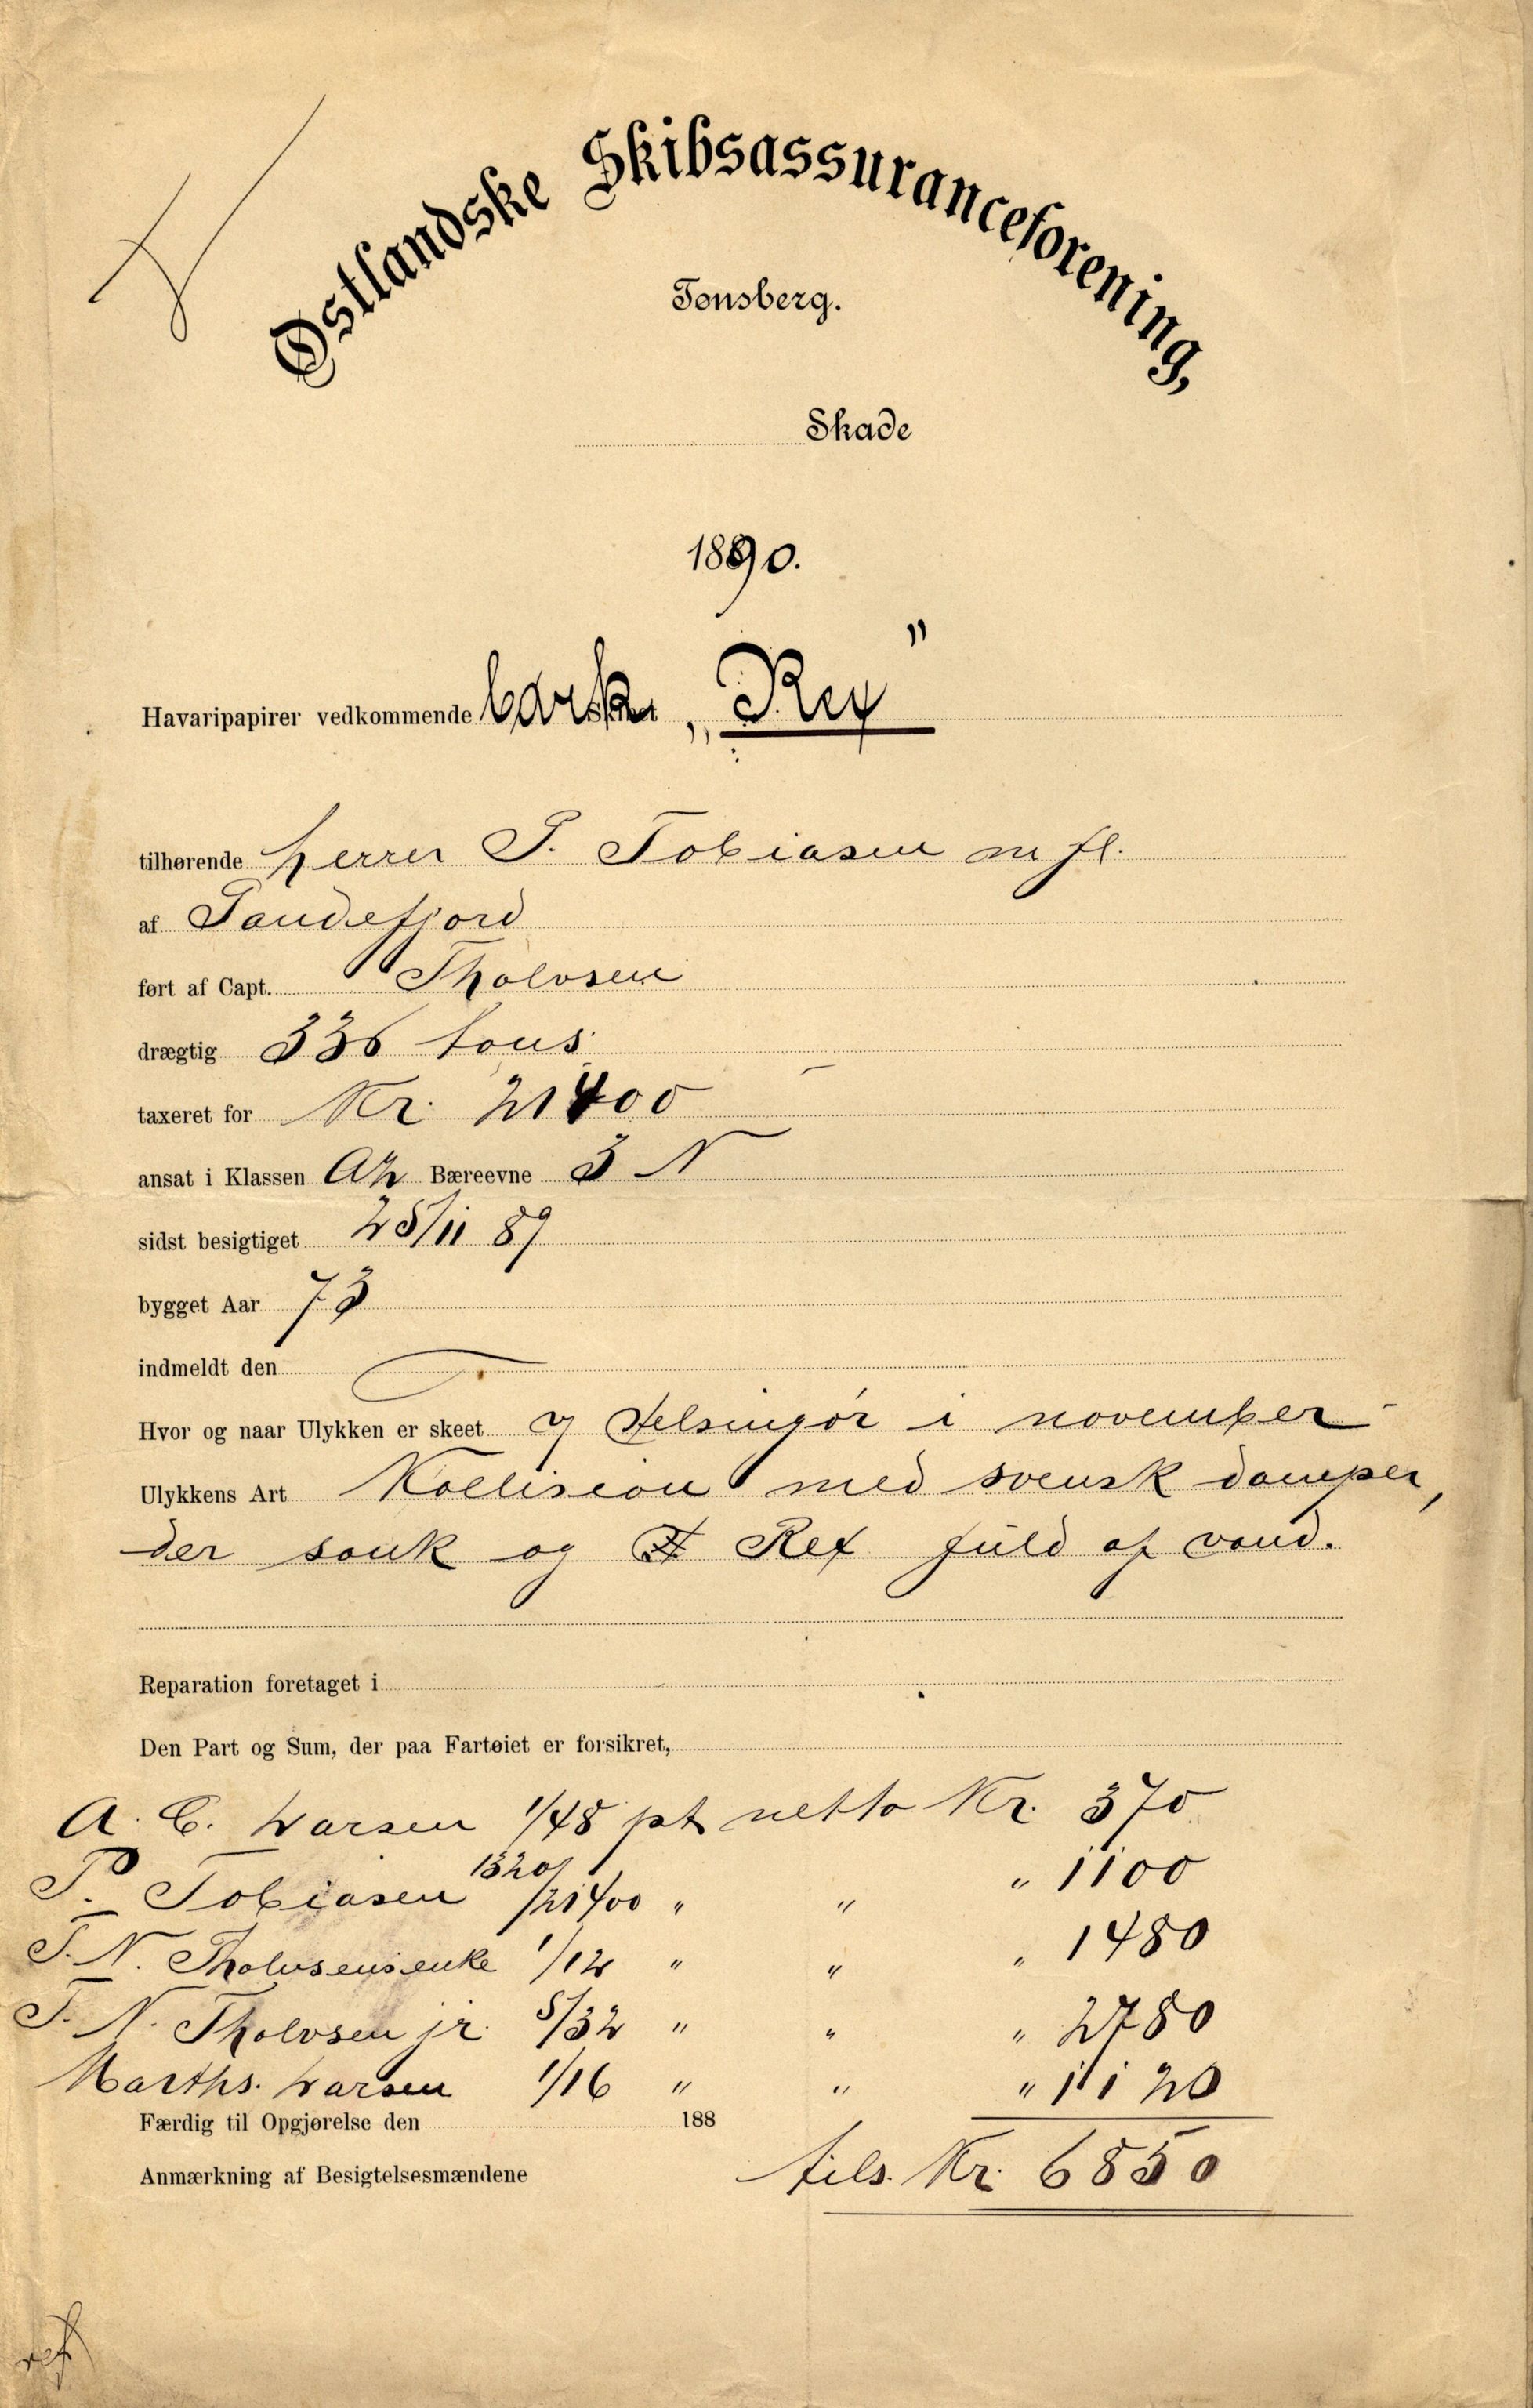 Østlandske Skibsassuranceforening,
Tønsberg.
Skade
1890.
Havaripapirer vedkommende bark „Rex"
tilhørende herrer P. Tobiasen m fl.
af Sandefjord
ført af Capt. Tholvsen
drægtig 336 tons
taxeret for Kr. 21400
ansat i Klassen A2 Bæreevne 3 N
sidst besigtiget 25/11 89
bygget Aar 73
indmeldt den
Hvor og naar Ulykken er skeet v Helsingør i november
Ulykkens Art Kollision med svensk damper,
der sank og Rex fuld af vand.
Reparation foretaget i
Den Part og Sum, der paa Fartøiet er forsikret,
A. C. Larsen 1/48 pt netto Kr. 370
P. Tobiasen 1320/21400 " " " 1100
T. N. Tholvsens enke 1/12 " " " 1480
T. N. Tholvsen jr. 5/32 " " " 2780
Marths. Larsen 1/16 " " " 1120
Færdig til Opgjørelse den 188
Anmærkning af Besigtelsesmændene
tils. Kr. 6850